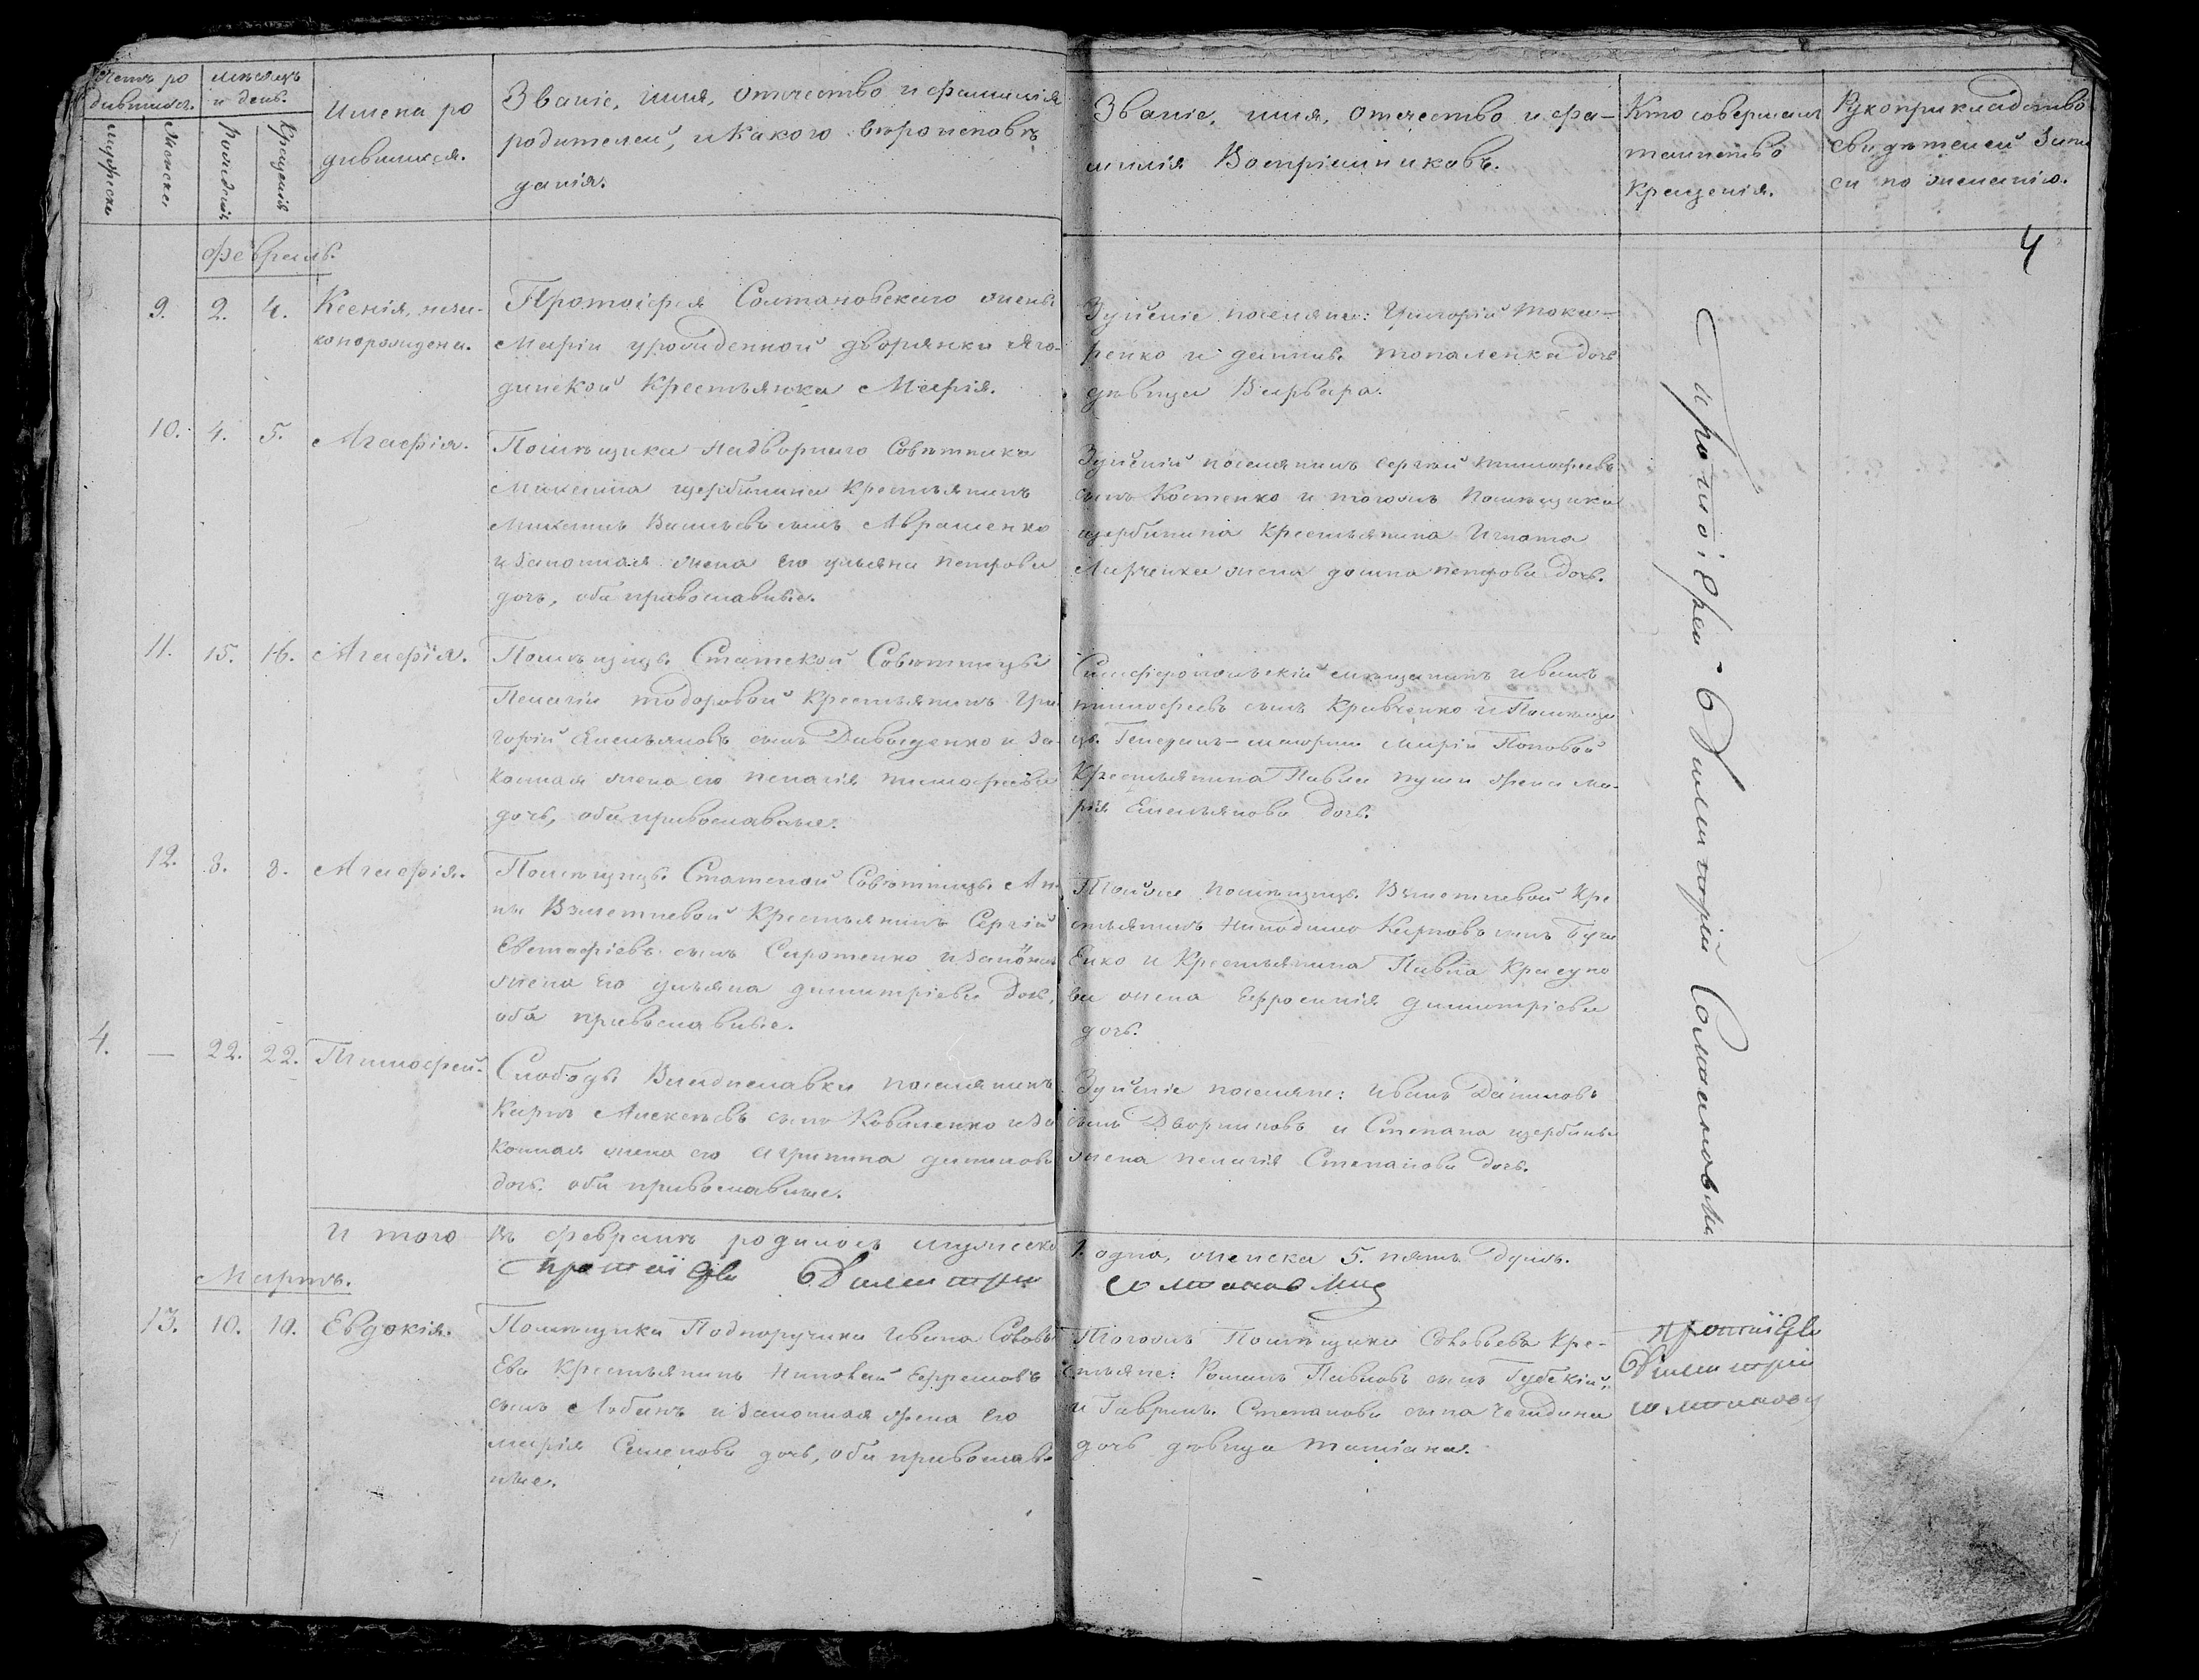 Счетъ ро
дившихся.
мѣсяцъ
и день.
Мужеска
Женска
Рожденія
Крещенія
Имена ро
дившихся.
Званіе, имя, отчество и фамилія
родителей, и какого вѣроисповѣ
данія.
Званіе, имя, отчество и фа-
милія Воспріемниковъ.
Кто совершалъ
таинство
крещенія.
Рукоприкладство
свидѣтелей запи
си по желанію.
4
Февраль.
9. 2. 4. Ксенія, неза-
коннорождена.
Протоіерея Солтановскаго жены
Маріи урожденной дворянки
крестьянка Марія.
Здѣшніе поселяне: Григорій Тока-
ренко и дочь
дѣвица Варвара.
10. 4. 5. Агафія.
Помѣщика Надворнаго Совѣтника
Михаила Щербинина крестьянинъ
Михаилъ Васильевъ сынъ Авраменко
и законная жена его Ульяна Петрова
дочь, оба православные.
Здѣшній поселянинъ Сергѣй Тимофеевъ
сынъ Костенко и тогожъ помѣщика
Щербинина крестьянина Игната
жена Домна Петрова дочь.
11. 15. 16. Агафія.
Помѣщицы Статской Совѣтницы
Пелагіи Тодоровой крестьянинъ Гри
горій Емельяновъ сынъ Давыденко и за
конная жена его Пелагія Тимофеева
дочь, оба православные.
Симферопольскій мѣщанинъ Иванъ
Тимофеевъ сынъ Кравченко и Помѣщи
цы Генералъ-маіорши Маріи Поповой
крестьянина Павла жена Ма-
рія Емельянова дочь.
12. 8. 8. Агафія.
Помѣщицы Статской Совѣтницы Ан
ны Взметневой крестьянинъ Сергій
Евстафіевъ сынъ Сиротенко и законная
жена его Ульяна Димитріева дочь,
оба православные.
Тойже помѣщицы Взметневой кре
стьянинъ Никодимъ Карповъ сынъ
енко и крестьянина Павла Красуно
ва жена Ефросинія Димитріева
дочь.
4. — 22. 22. Тимофей.
Слободы Владиславки поселянинъ
Карпъ Алексѣевъ сынъ Коваленко и за
конная жена его Агрипина Данилова
дочь. оба православные.
Здѣшніе поселяне: Иванъ Даниловъ
сынъ Дворниковъ и Степана Щербины
жена Пелагія Степанова дочь.
Протоіерей Димитрій Солтановскій
И того Въ февралѣ родилось мужеска
1. одна, женска 5. пять душъ.
Протоіерей Димитрій
Солтановскій
Мартъ.
13. 10. 10. Евдокія.
Помѣщика Подпоручика Ивана Соловь
ева крестьянинъ Николай Ефремовъ
сынъ Лобанъ и законная жена его
Марія Семенова дочь, оба православ
ные.
Тогожъ Помѣщика Соловьева кре-
стьяне: Романъ Павловъ сынъ Губскій,
и Гаврилы Степанова сына
дочь дѣвица Татіана.
Протоіерей
Димитрій
Солтановскій